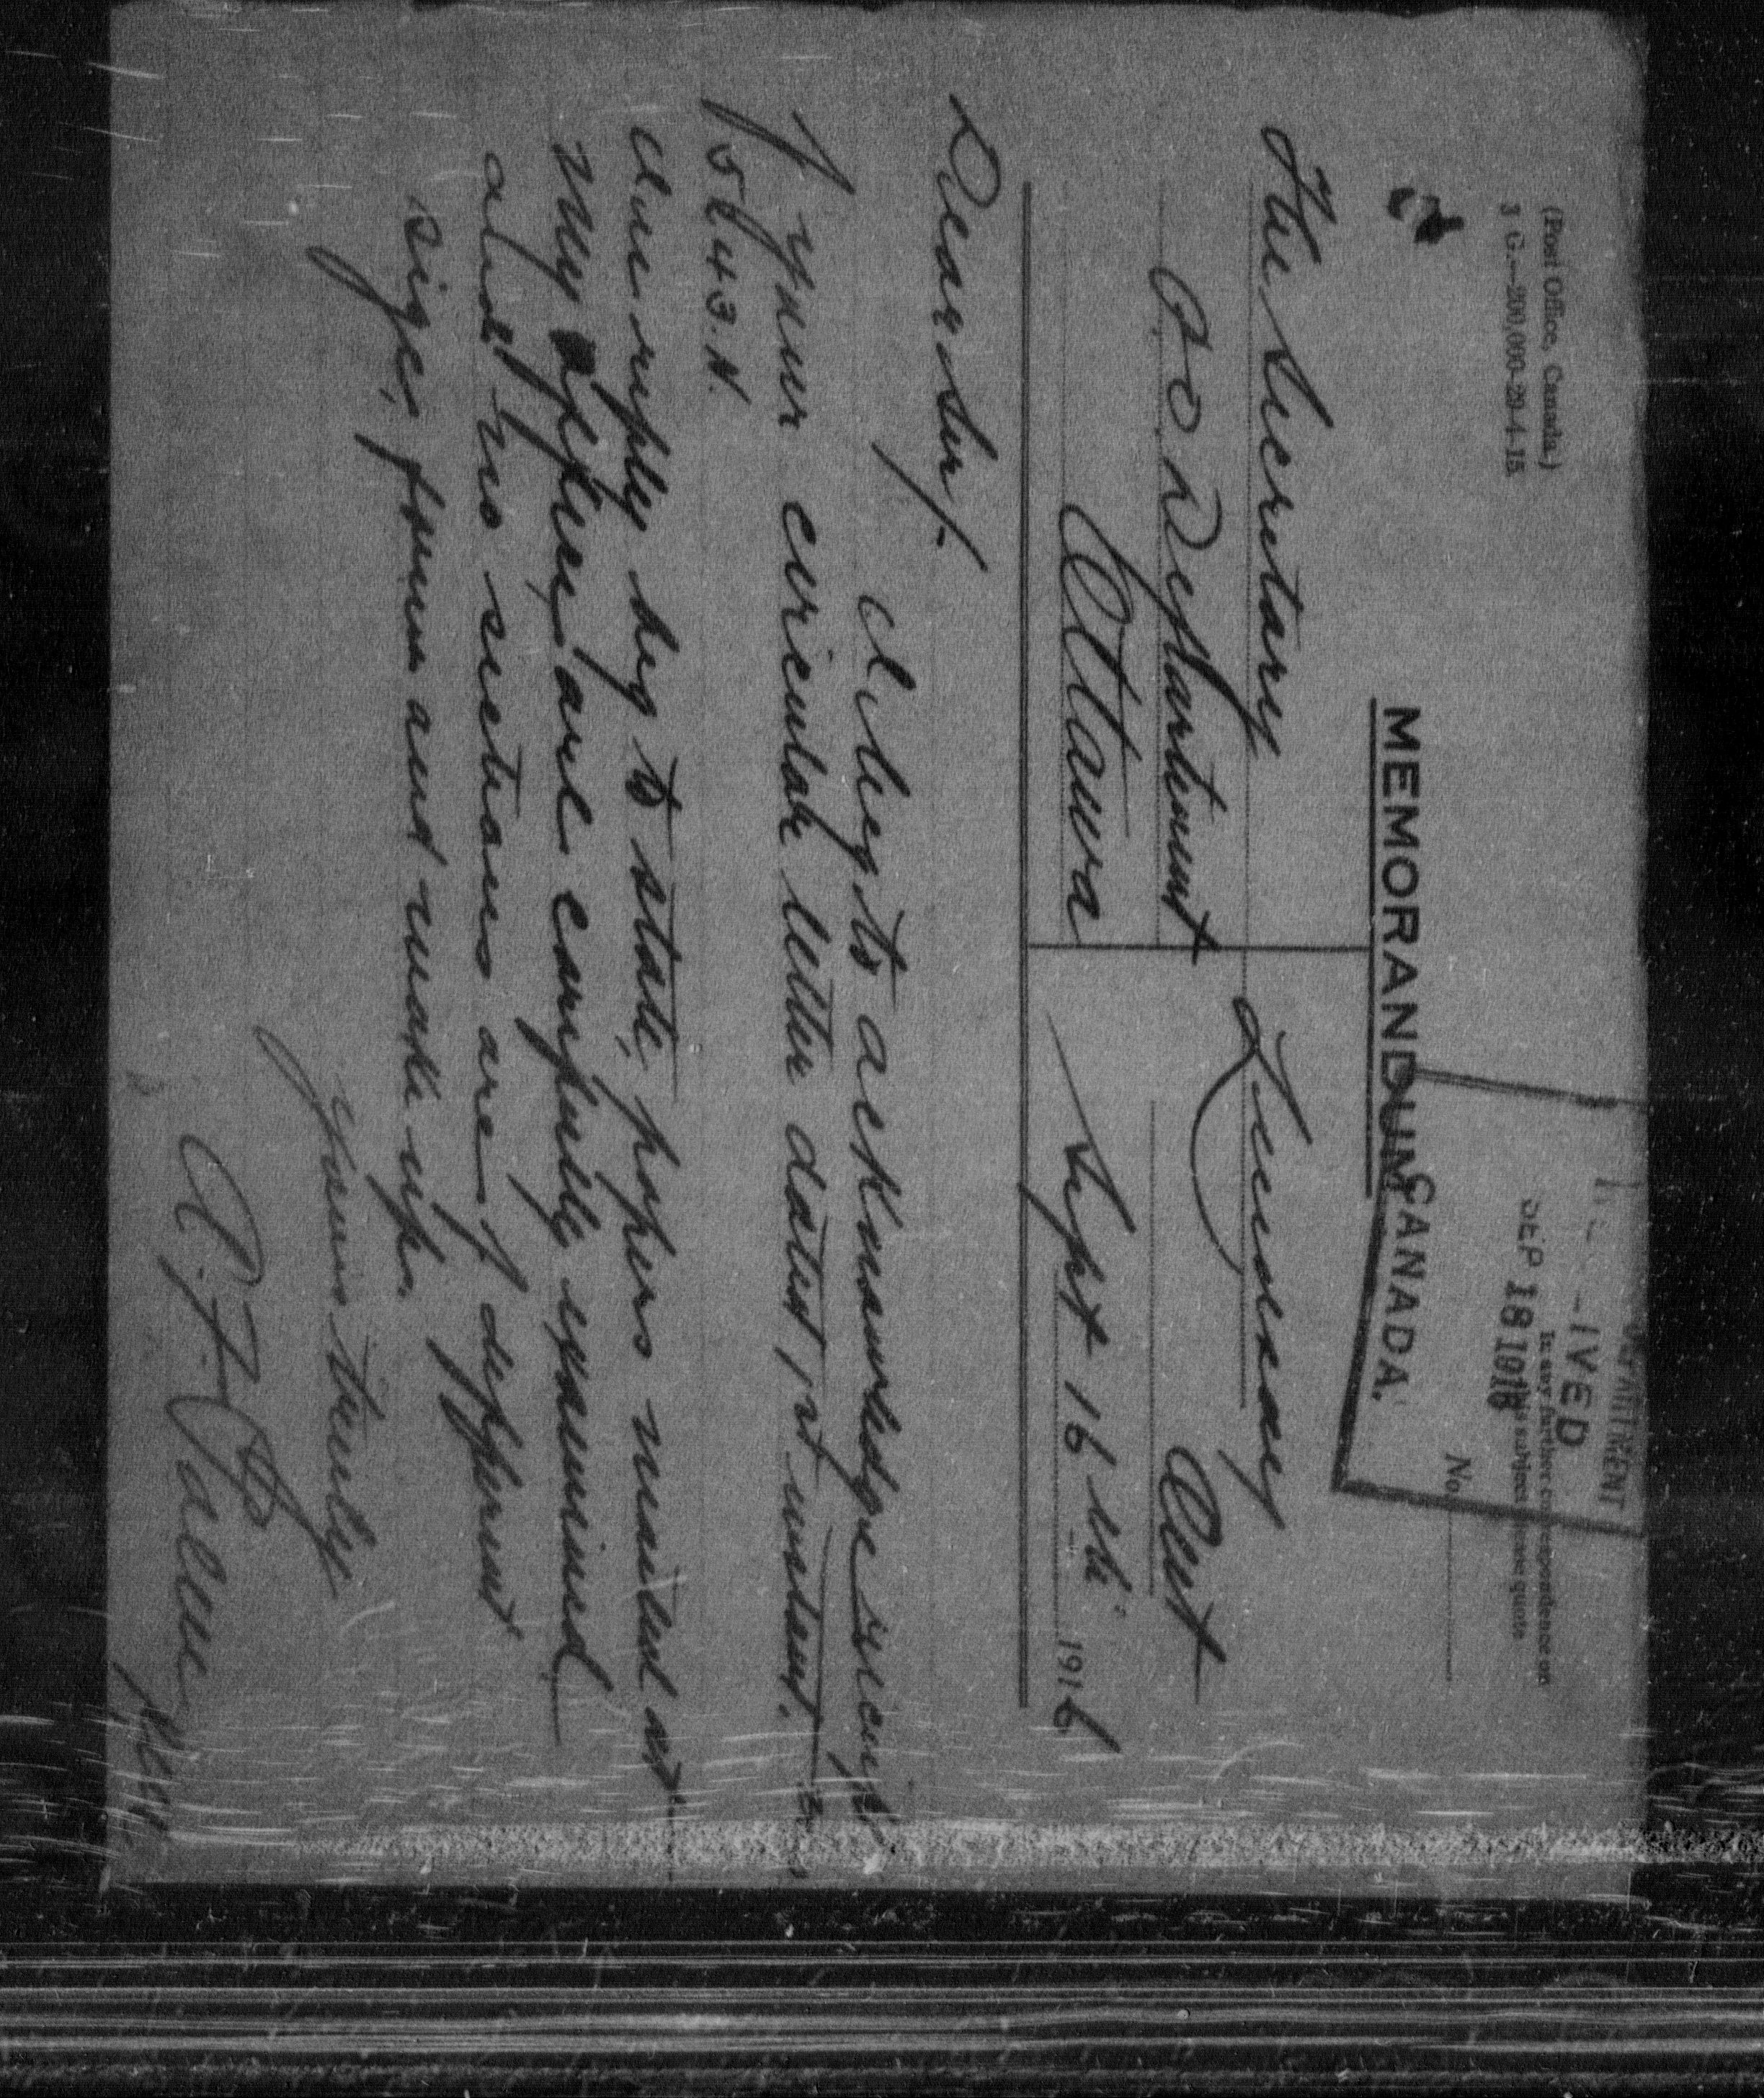 (Post Office, Canada.)
3 G.—200,000-29-4-15.
DEPARTMENT
-IVED
SEP 18 1916
In any further correspondence on
this subject please quote
No.
MEMORANDUM
CANADA.
The Secretary
P O Department
Ottawa
Lindsay
Ont
Sept 16th 1916
Dear Sir/-
I beg to acknowledge receipt
of your circular letter dated 1st instant.
56543.N.
In reply beg to state, papers mailed at
my office, are carefully examined
and no sections are of different
size, form and make up.
Yours truly